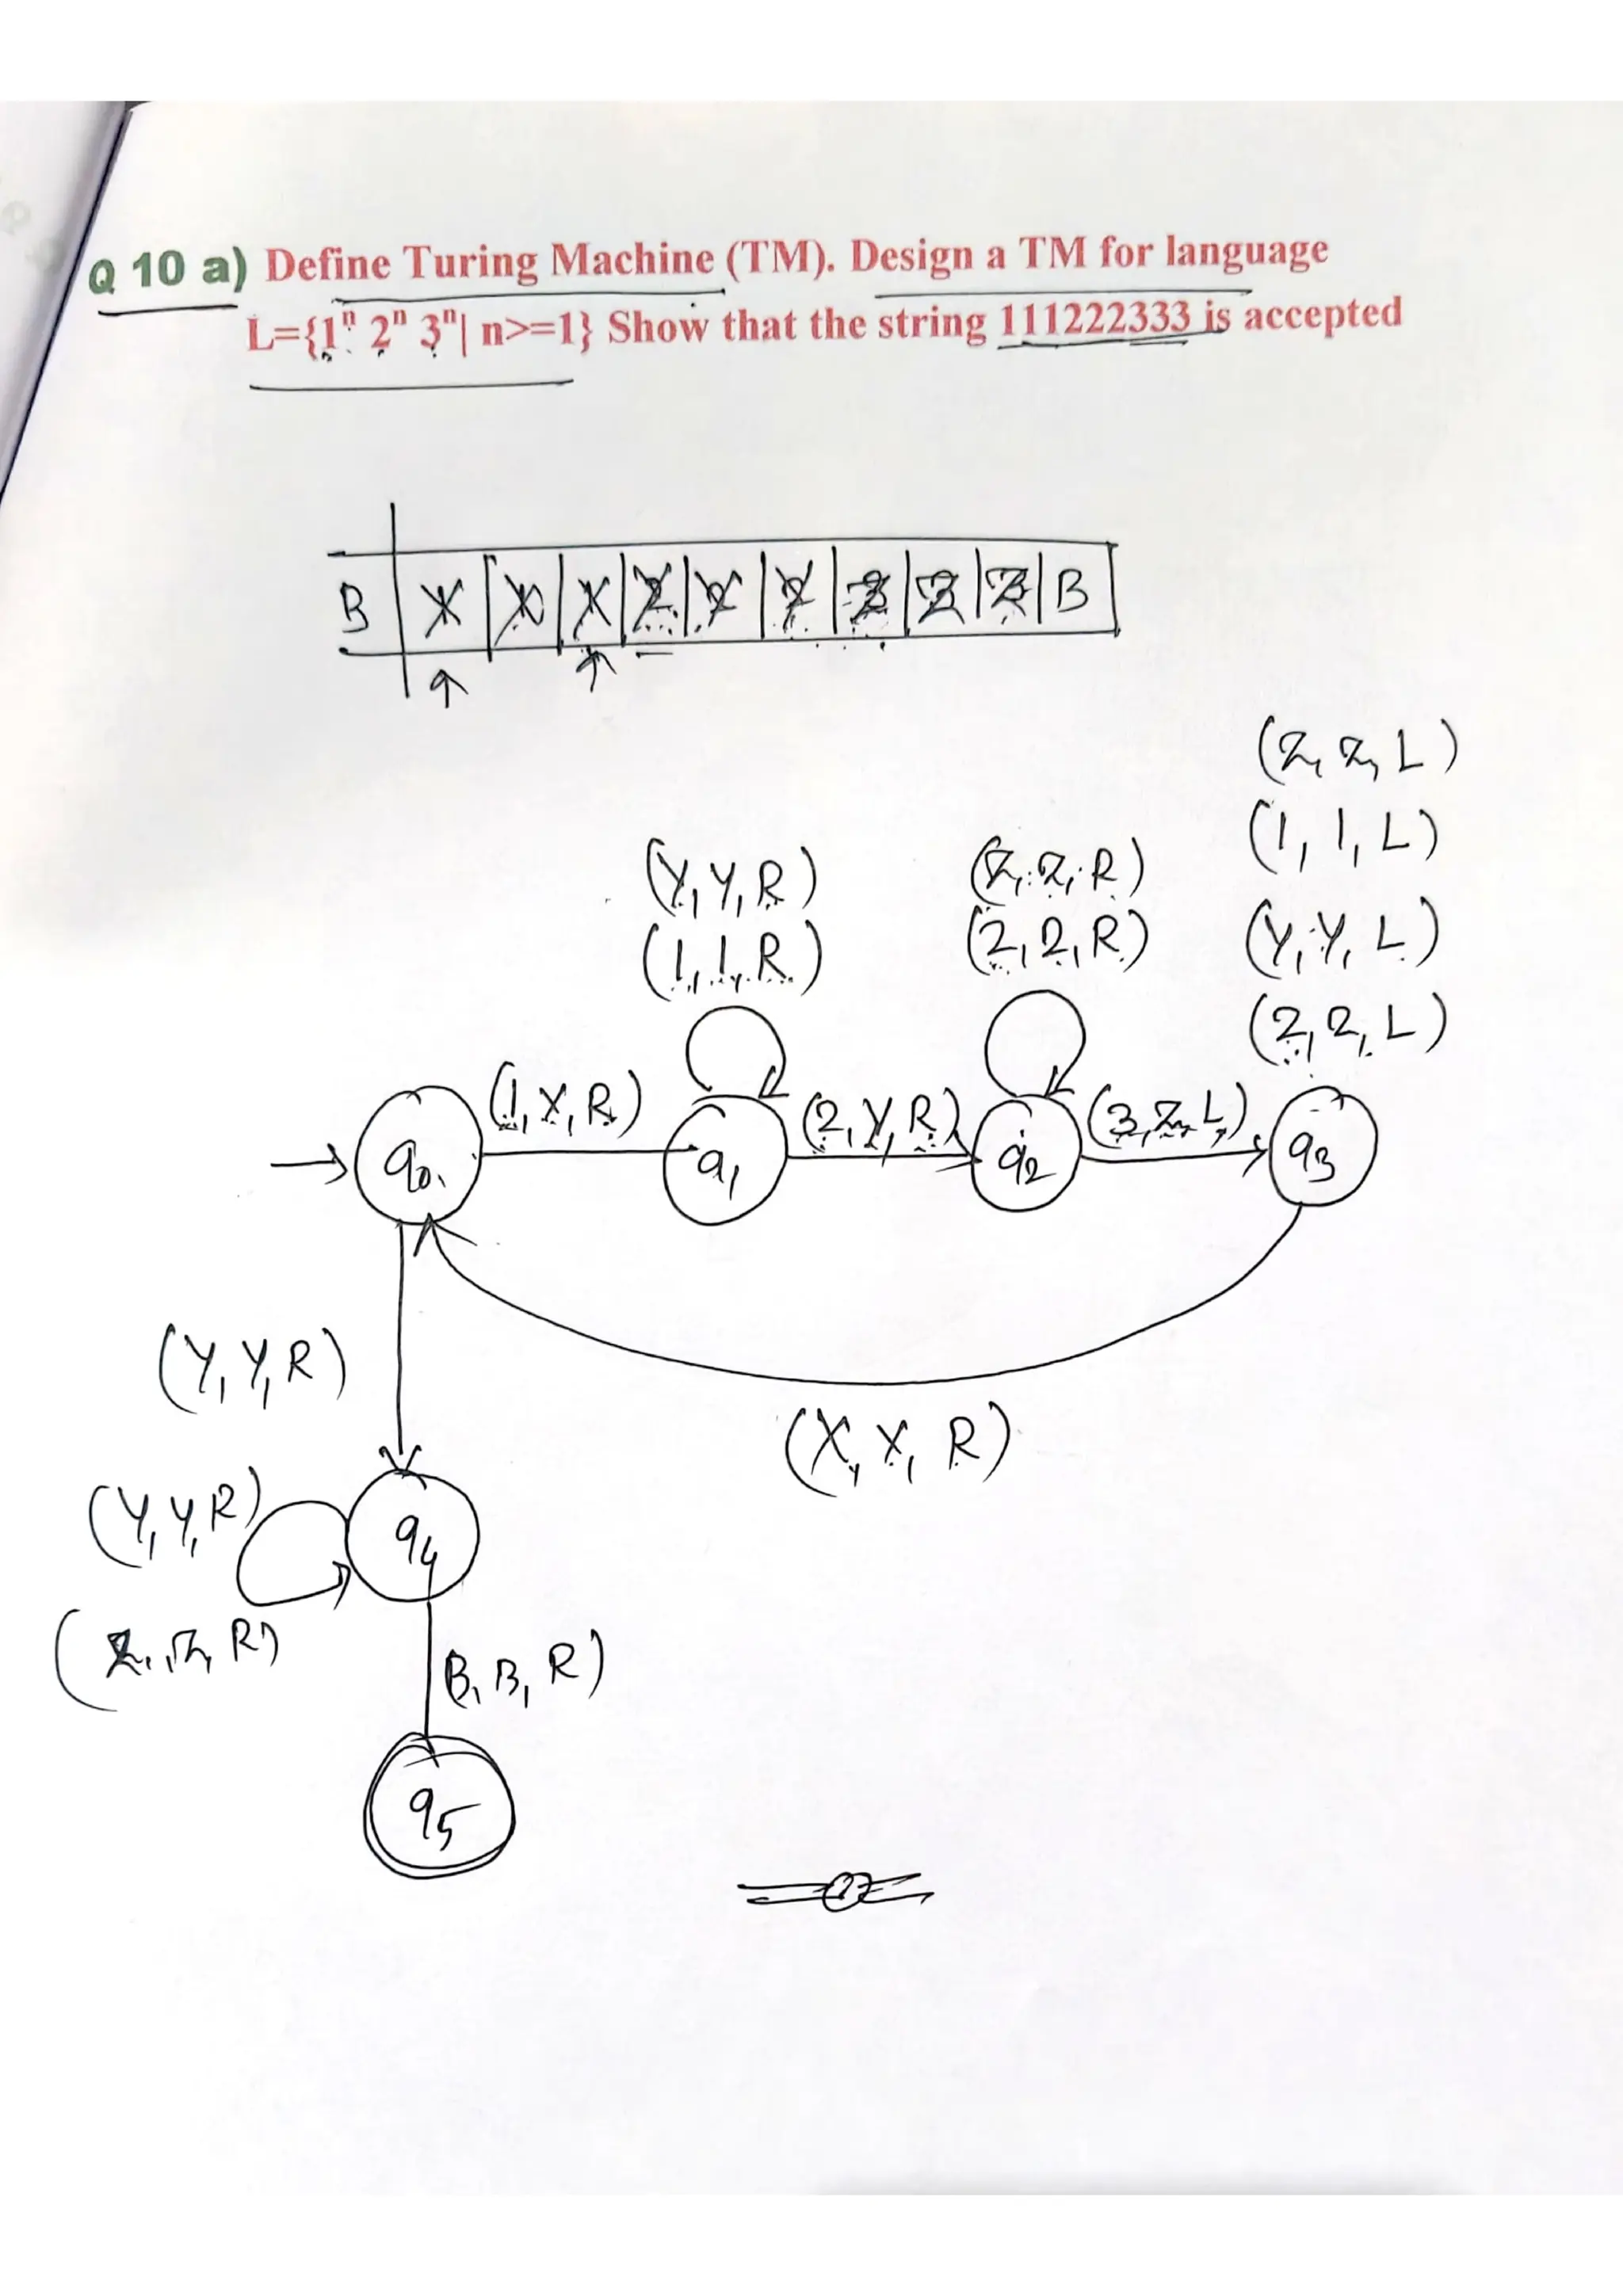 Q 10 a) Define Turing Machine (TM). Design a TM for language
L={1ⁿ 2ⁿ 3ⁿ| n>=1} Show that the string 111222333 is accepted
B X X X Y Y Y Z Z Z B
(Z, Z, L)
(1, 1, L)
(Y, Y, R) (Z, Z, R) (Y, Y, L)
(1, 1, R) (2, 2, R) (2, 2, L)
(1, X, R) (2, Y, R) (3, Z, L)
q0 q1 q2 q3
(Y, Y, R)
(X, X, R)
(Y, Y, R) q4
(Z, Z, R) B, B, R)
q5